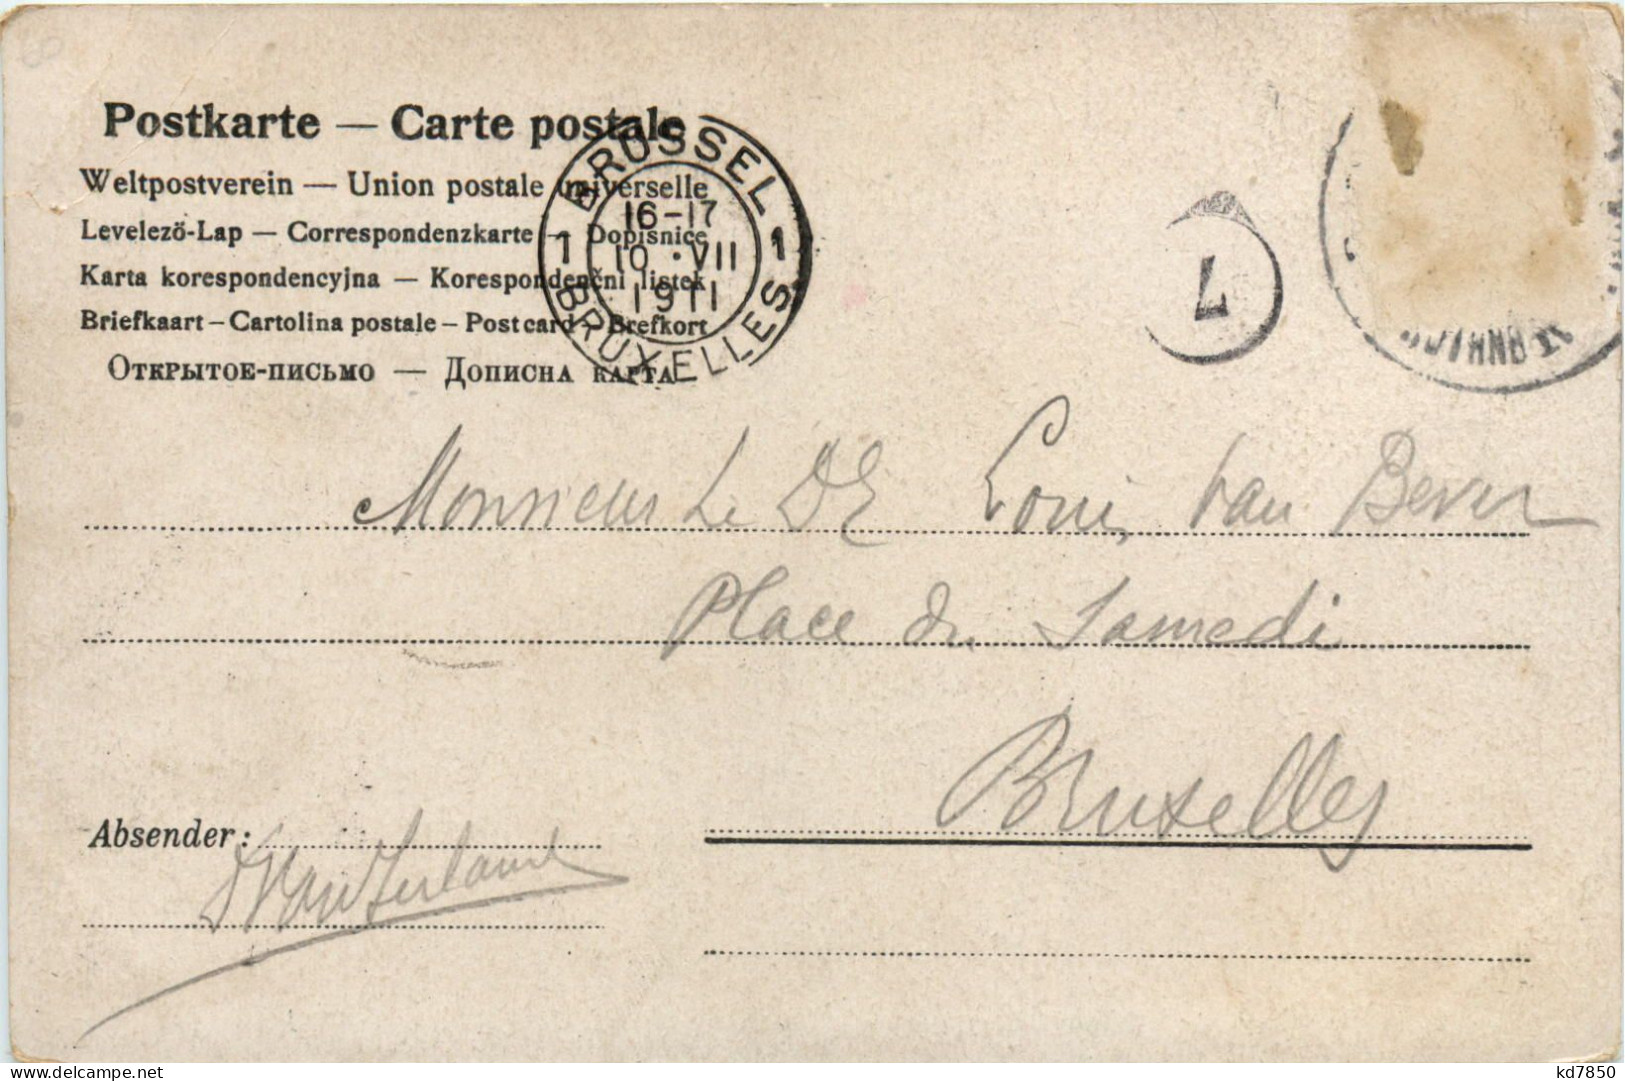 Postkarte — Carte postale
Weltpostverein — Union postale universelle
Levelezö-Lap — Correspondenzkarte — Dopisnice
Karta korespondencyjna — Korespondenční listek
Briefkaart – Cartolina postale – Post card – Brefkort
Открытое-письмо — Дописна карта
BRUSSEL
16-17
1 10 · VII 1
1911
BRUXELLES
7
Monsieur Le Dr Louis Van Bever
Place du Samedi
Bruxelles
Absender:
kd7850